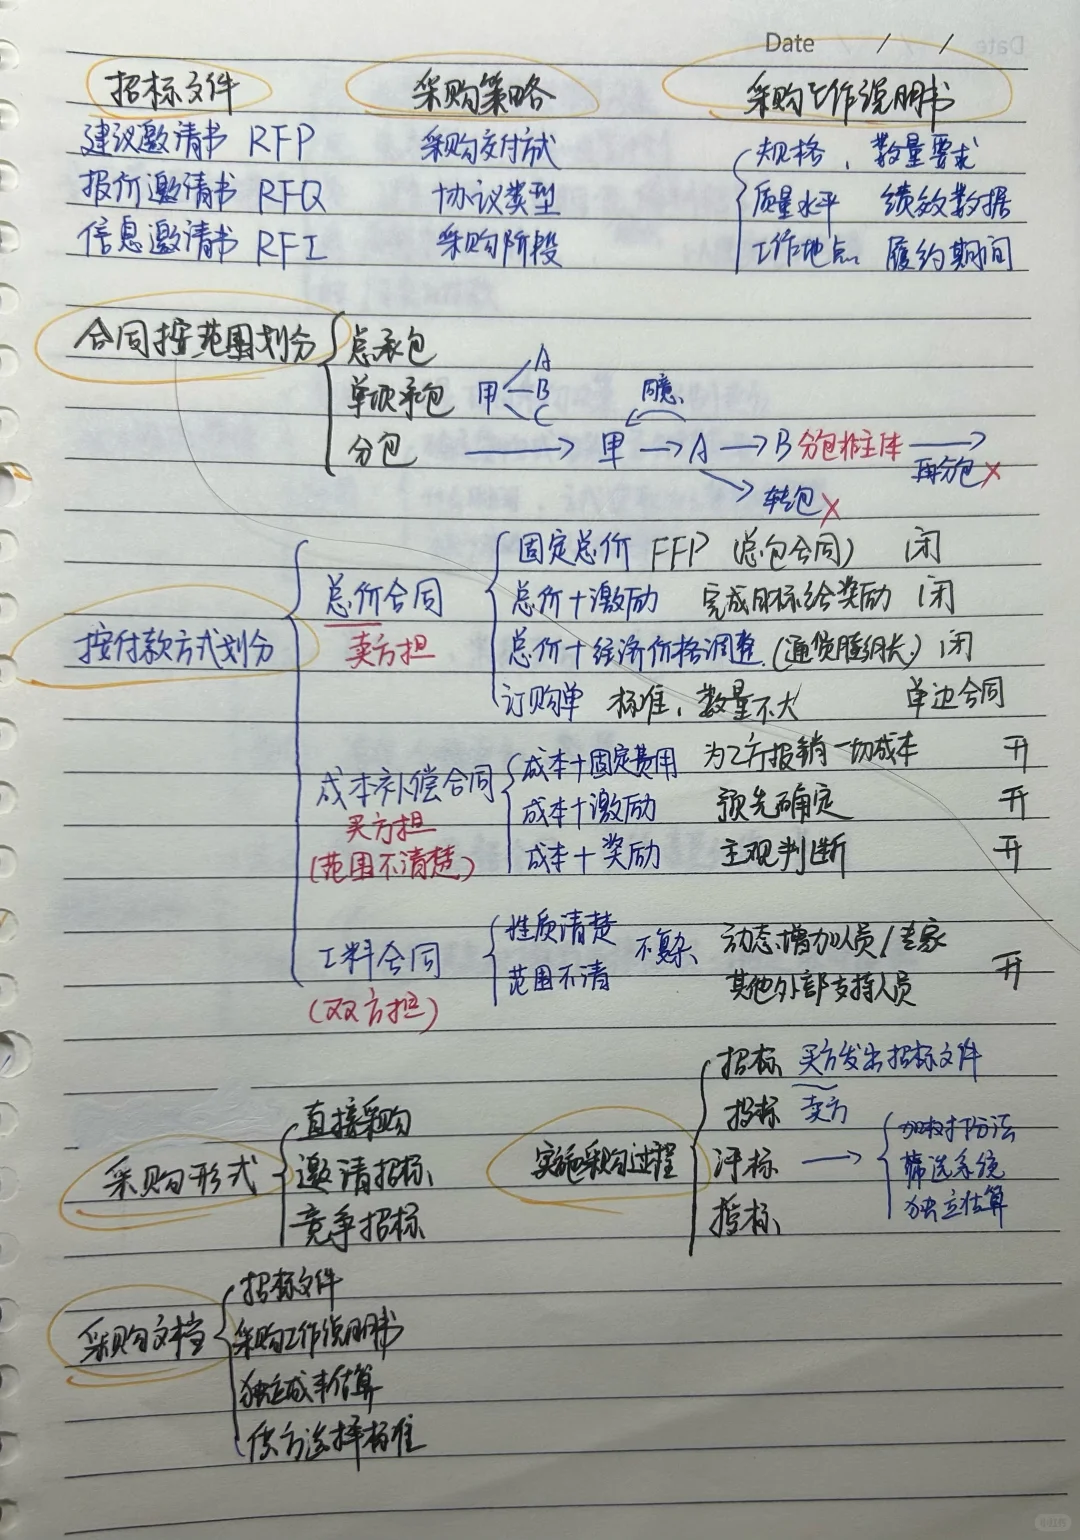 Date / / /
招标文件 采购策略 采购工作说明书
建议邀请书 RFP 采购交付方式 规格、数量要求
报价邀请书 RFQ 协议类型 质量水平 绩效数据
信息邀请书 RFI 采购阶段 工作地点 履约期间
合同按范围划分
总承包
单项承包 甲 A B C 同意
分包 甲 A B 分包非主体 再分包 ×
转包 ×
按付款方式划分
总价合同
卖方担
固定总价 FFP (总包合同) 闭
总价+激励 完成目标给奖励 闭
总价+经济价格调整 (通货膨胀、长) 闭
订购单 标准、数量不大 单边合同
成本补偿合同
买方担
(范围不清楚)
成本+固定费用 为乙方报销一切成本 开
成本+激励 预先确定 开
成本+奖励 主观判断 开
工料合同
(双方担)
性质清楚 不复杂、动态增加人员/专家
范围不清 其他外部支持人员 开
采购形式
直接采购
邀请招标
竞争招标
实施采购过程
招标 买方发出招标文件
投标 卖方
评标 加权打分法
筛选系统
独立估算
授标
采购文档
招标文件
采购工作说明书
独立成本估算
供方选择标准